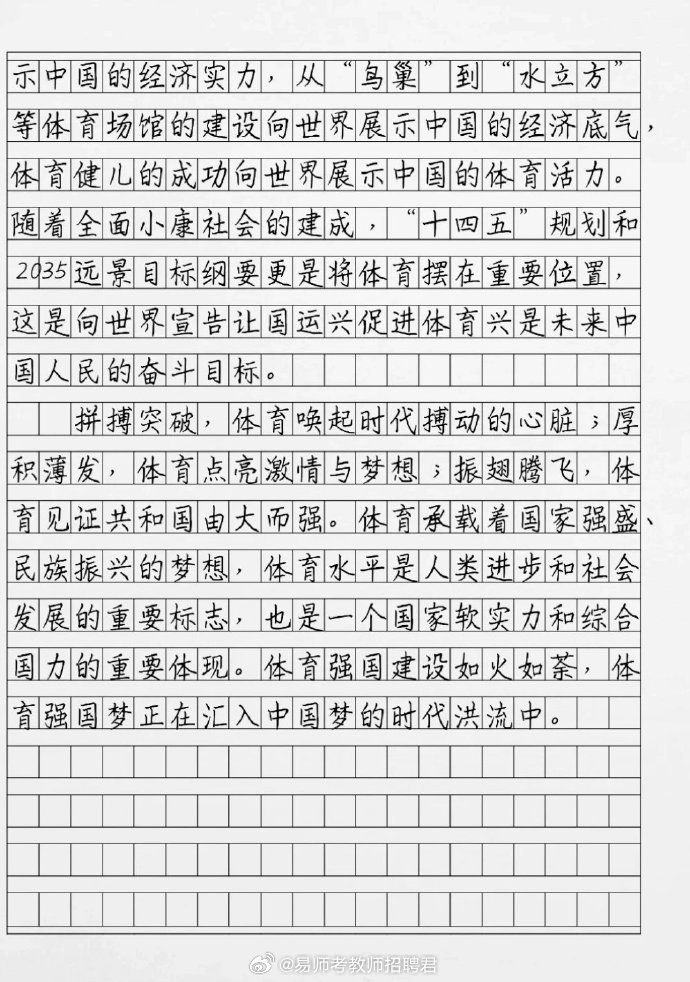 示中国的经济实力，从“鸟巢”到“水立方”
等体育场馆的建设向世界展示中国的经济底气，
体育健儿的成功向世界展示中国的体育活力。
随着全面小康社会的建成，“十四五”规划和
2035远景目标纲要更是将体育摆在重要位置，
这是向世界宣告让国运兴促进体育兴是未来中
国人民的奋斗目标。
拼搏突破，体育唤起时代搏动的心脏；厚
积薄发，体育点亮激情与梦想；振翅腾飞，体
育见证共和国由大而强。体育承载着国家强盛、
民族振兴的梦想，体育水平是人类进步和社会
发展的重要标志，也是一个国家软实力和综合
国力的重要体现。体育强国建设如火如荼，体
育强国梦正在汇入中国梦的时代洪流中。
@易师考教师招聘君